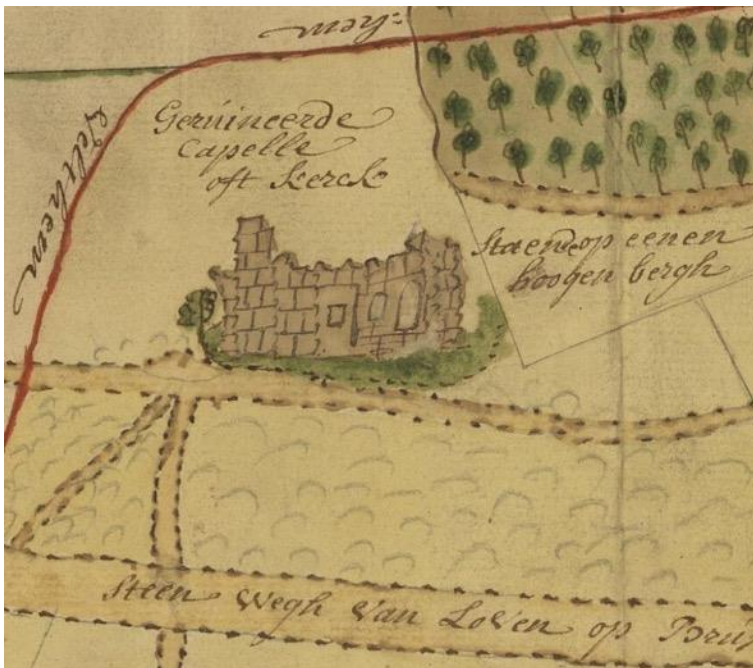 :hem
Velthem
Gerúineerde
Capelle
oft Kerck
Staende op eenen
hoogen bergh
Steen Wegh Van Loven op Brúſ